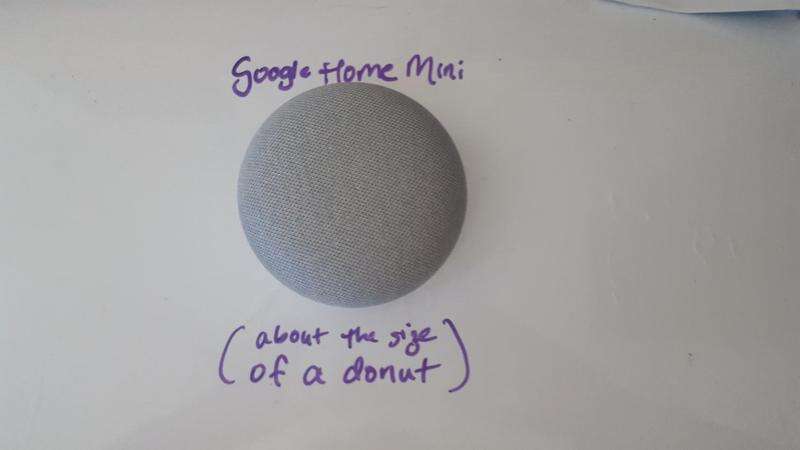 Google Home Mini
(about the size
of a donut)